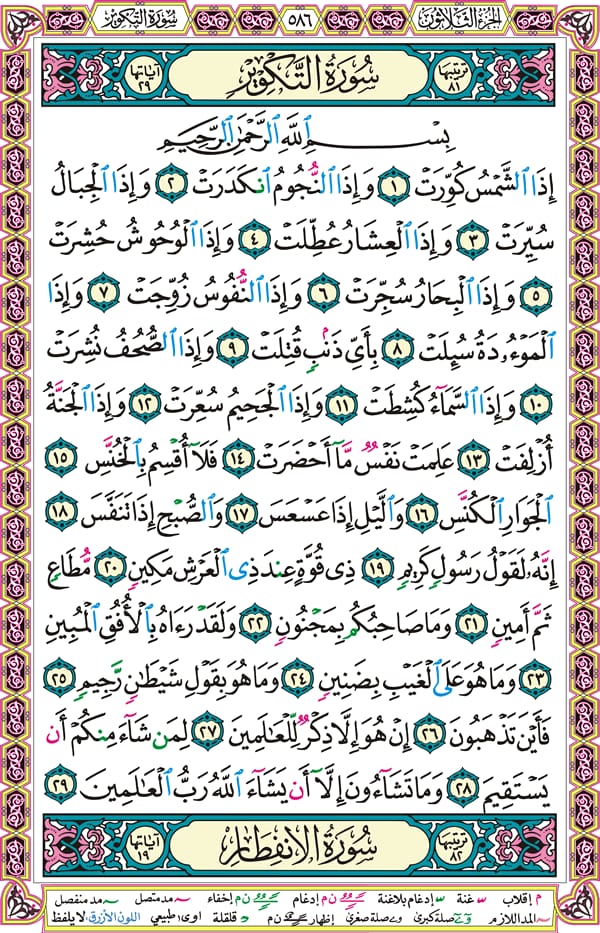 الجزء الثلاثون ٥٨٦ سورة التكوير
ترتيبها ٨١ سُورَةُ التَّكْوِيرِ آياتها ٢٩
بِسْمِ ٱللَّهِ ٱلرَّحْمَٰنِ ٱلرَّحِيمِ
إِذَا ٱلشَّمْسُ كُوِّرَتْ ١ وَإِذَا ٱلنُّجُومُ ٱنكَدَرَتْ ٢ وَإِذَا ٱلْجِبَالُ
سُيِّرَتْ ٣ وَإِذَا ٱلْعِشَارُ عُطِّلَتْ ٤ وَإِذَا ٱلْوُحُوشُ حُشِرَتْ
٥ وَإِذَا ٱلْبِحَارُ سُجِّرَتْ ٦ وَإِذَا ٱلنُّفُوسُ زُوِّجَتْ ٧ وَإِذَا
ٱلْمَوْءُۥدَةُ سُئِلَتْ ٨ بِأَىِّ ذَنۢبٍ قُتِلَتْ ٩ وَإِذَا ٱلصُّحُفُ نُشِرَتْ
١٠ وَإِذَا ٱلسَّمَآءُ كُشِطَتْ ١١ وَإِذَا ٱلْجَحِيمُ سُعِّرَتْ ١٢ وَإِذَا ٱلْجَنَّةُ
أُزْلِفَتْ ١٣ عَلِمَتْ نَفْسٌ مَّآ أَحْضَرَتْ ١٤ فَلَآ أُقْسِمُ بِٱلْخُنَّسِ ١٥
ٱلْجَوَارِ ٱلْكُنَّسِ ١٦ وَٱلَّيْلِ إِذَا عَسْعَسَ ١٧ وَٱلصُّبْحِ إِذَا تَنَفَّسَ ١٨
إِنَّهُۥ لَقَوْلُ رَسُولٍ كَرِيمٍ ١٩ ذِى قُوَّةٍ عِندَ ذِى ٱلْعَرْشِ مَكِينٍ ٢٠ مُّطَاعٍ
ثَمَّ أَمِينٍ ٢١ وَمَا صَاحِبُكُم بِمَجْنُونٍ ٢٢ وَلَقَدْ رَءَاهُ بِٱلْأُفُقِ ٱلْمُبِينِ
٢٣ وَمَا هُوَ عَلَى ٱلْغَيْبِ بِضَنِينٍ ٢٤ وَمَا هُوَ بِقَوْلِ شَيْطَٰنٍ رَّجِيمٍ ٢٥
فَأَيْنَ تَذْهَبُونَ ٢٦ إِنْ هُوَ إِلَّا ذِكْرٌ لِّلْعَٰلَمِينَ ٢٧ لِمَن شَآءَ مِنكُمْ أَن
يَسْتَقِيمَ ٢٨ وَمَا تَشَآءُونَ إِلَّآ أَن يَشَآءَ ٱللَّهُ رَبُّ ٱلْعَٰلَمِينَ ٢٩
ترتيبها ٨٢ سُورَةُ الِانفِطَارِ آياتها ١٩
م إقلاب غنة إدغام بلاغنة ن م إدغام ن م إخفاء مد متصل مد منفصل
المد اللازم صلة كبرى صلة صغرى ن م إظهار قلقلة اوى؛ طبيعي اللون الأزرق: لا يلفظ